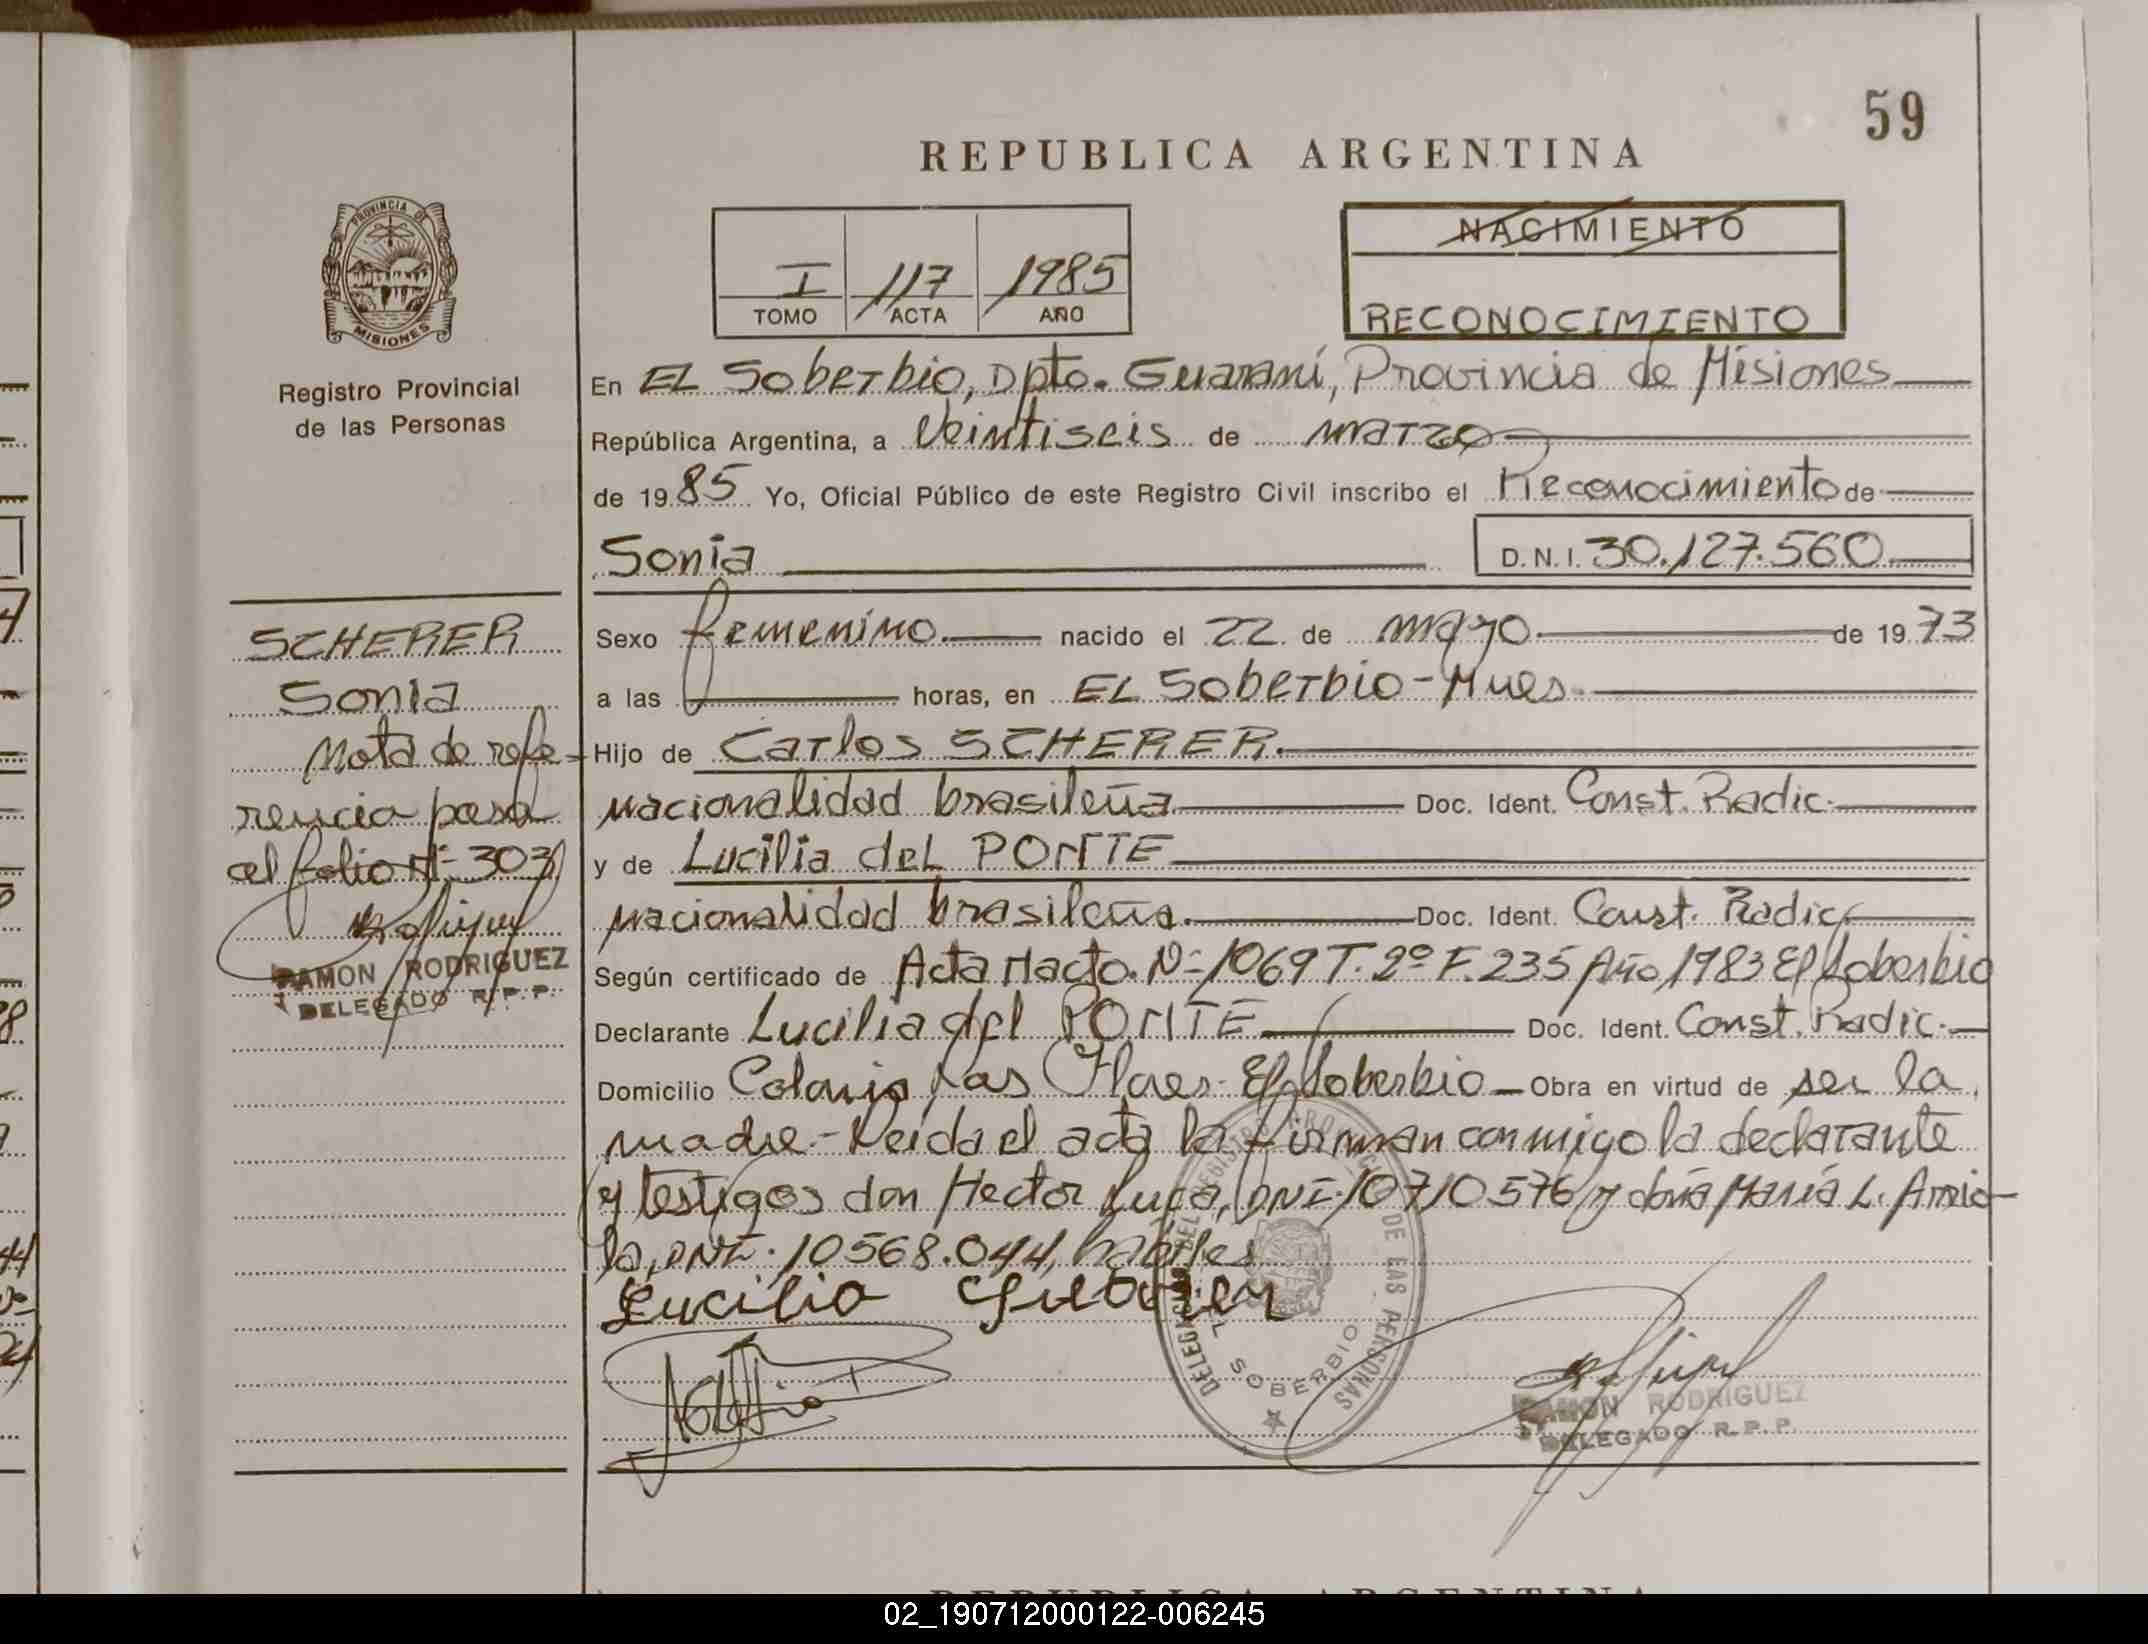 59
REPUBLICA ARGENTINA
PROVINCIA DE
MISIONES
Registro Provincial
de las Personas
I 117 1985
TOMO ACTA AÑO
NACIMIENTO
RECONOCIMIENTO
En EL Soberbio, Dpto. Guaraní, Provincia de Misiones
República Argentina, a Veintiseis de marzo
de 1985 Yo, Oficial Público de este Registro Civil inscribo el Reconocimiento de
Sonia D.N.I. 30.127.560
SCHERER
Sonia
Nota de refe-
rencia pasa
al folio Nº 303
RAMON RODRIGUEZ
DELEGADO R.P.P.
Sexo femenino. nacido el 22 de mayo de 1973
a las horas, en EL Soberbio-Mnes.
Hijo de Carlos SCHERER.
nacionalidad brasileña Doc. Ident. Const. Radic.
y de Lucilia del PONTE
nacionalidad brasileña. Doc. Ident. Const. Radic.
Según certificado de Acta Nacto. Nº 1069 T. 2º F. 235 Año 1983 El Soberbio
Declarante Lucilia del PONTE Doc. Ident. Const. Radic.
Domicilio Colonia Las Flores- El Soberbio Obra en virtud de ser la
madre.- Leida el acta la firman conmigo la declarante
y testigos don Hector Luca, DNI. 10710.576 y doña María L. Arrio-
la, DNI. 10568.044, habiles
Lucilia
REGISTRO PROVINCIAL DE LAS PERSONAS
DELEGACION
EL SOBERBIO
RAMON RODRIGUEZ
DELEGADO R.P.P.
REPUBLICA ARGENTINA
02_190712000122-006245